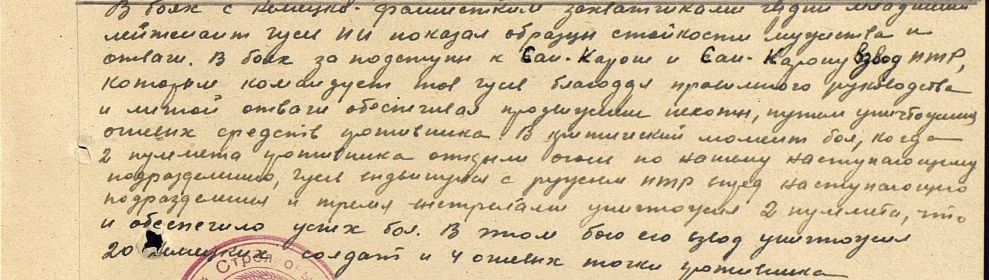 В боях с немецко-фашистскими захватчиками гвардии младший
лейтенант Гусев ИИ показал образцы стойкости мужества и
отваги. В боях за подступы к Сан-Кароли и Сан-Кароли взвод ПТР,
которым командует тов Гусев благодаря правильного руководства
и личной отваги обеспечивал продвижение пехоты, путем уничтожения
огневых средств противника. В критический момент боя, когда
2 пулемета противника открыли огонь по нашему наступающему
подразделению, Гусев выдвинулся с ружьем ПТР вперед наступающего
подразделения и тремя выстрелами уничтожил 2 пулемета, что
и обеспечило успех боя. В этом бою его взвод уничтожил
20 немецких солдат и 4 огневых точки противника
Стрел